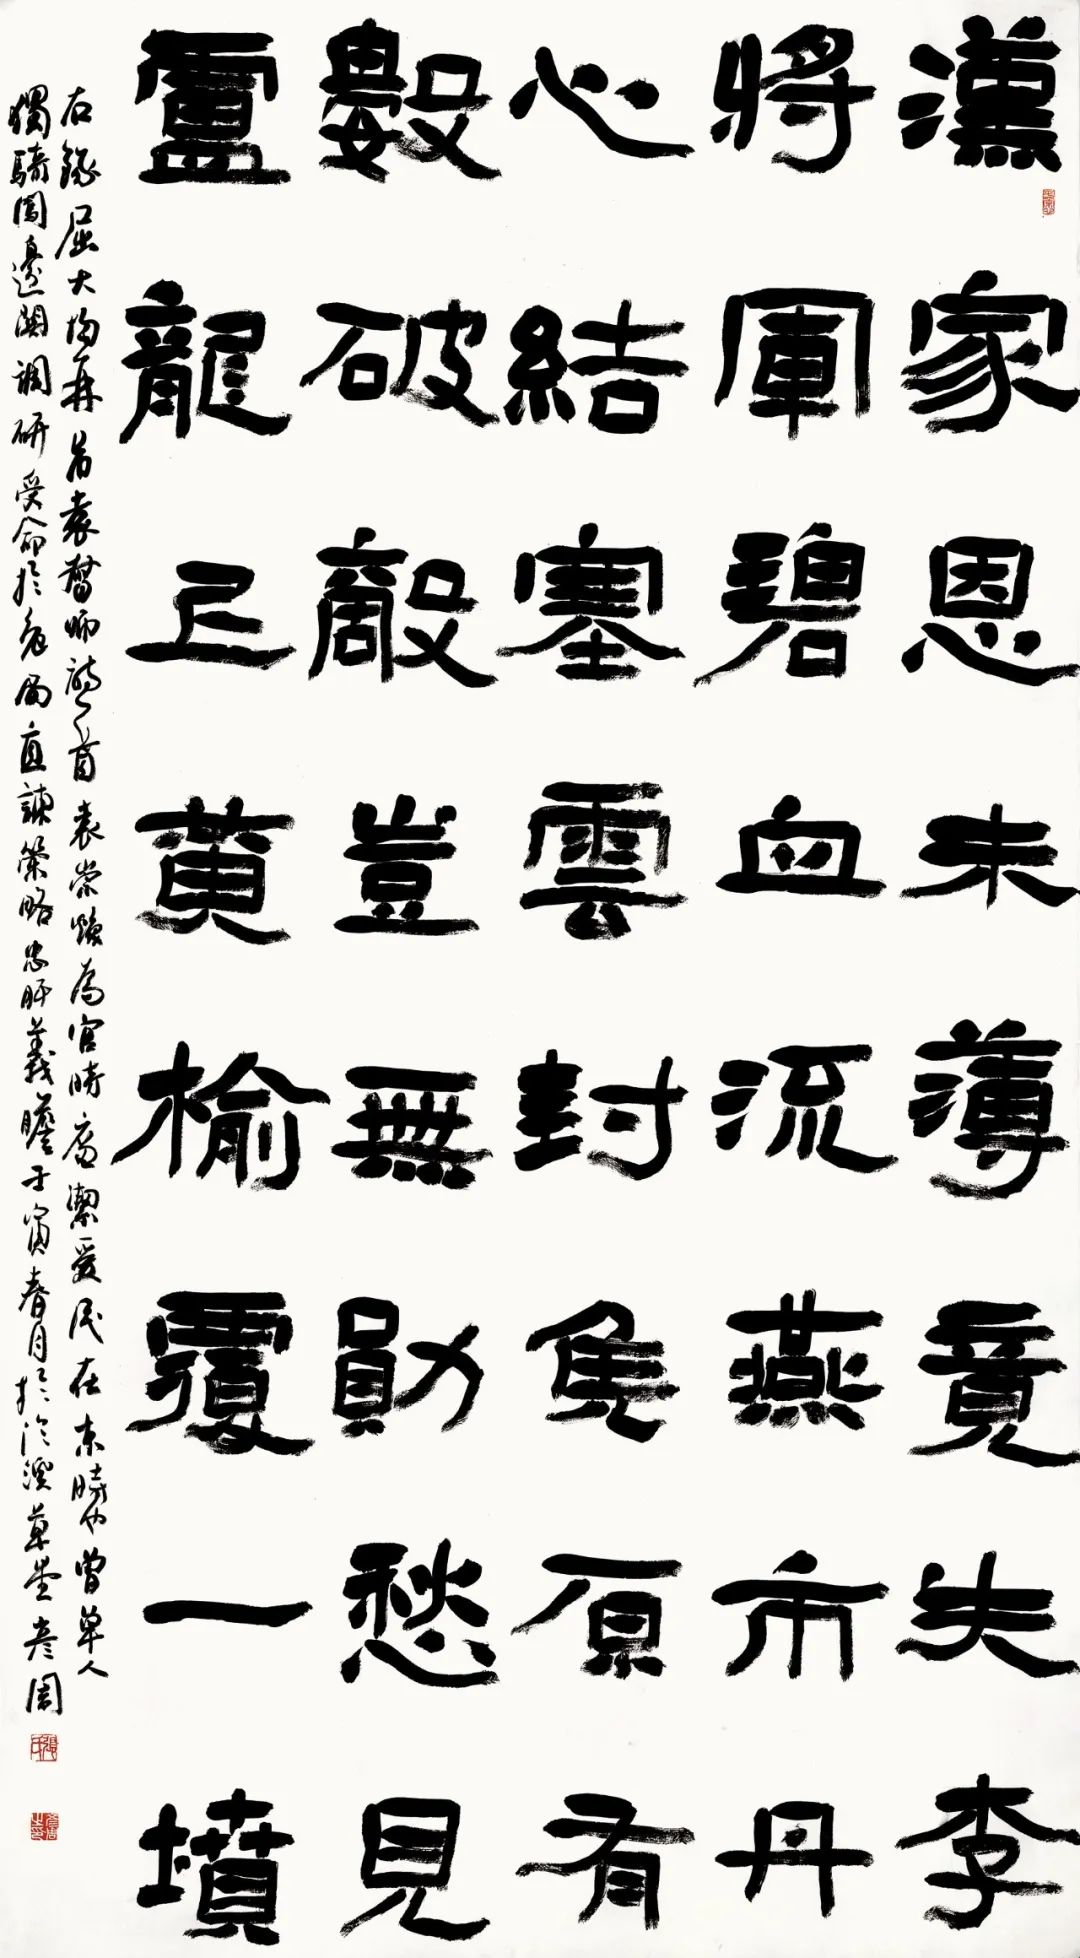 漢家恩未薄竟失李
將軍碧血流燕市丹
心結塞雲封侯原有
數破敵豈無勛愁見
盧龍黃榆覆一墳
右錄屈大均再吊袁督師詩一首袁崇煥為官時廉潔愛民在京時也曾單人
獨騎闖邊關調研受命於危局直諫策略忠肝義膽壬寅春月於溪草堂彥周